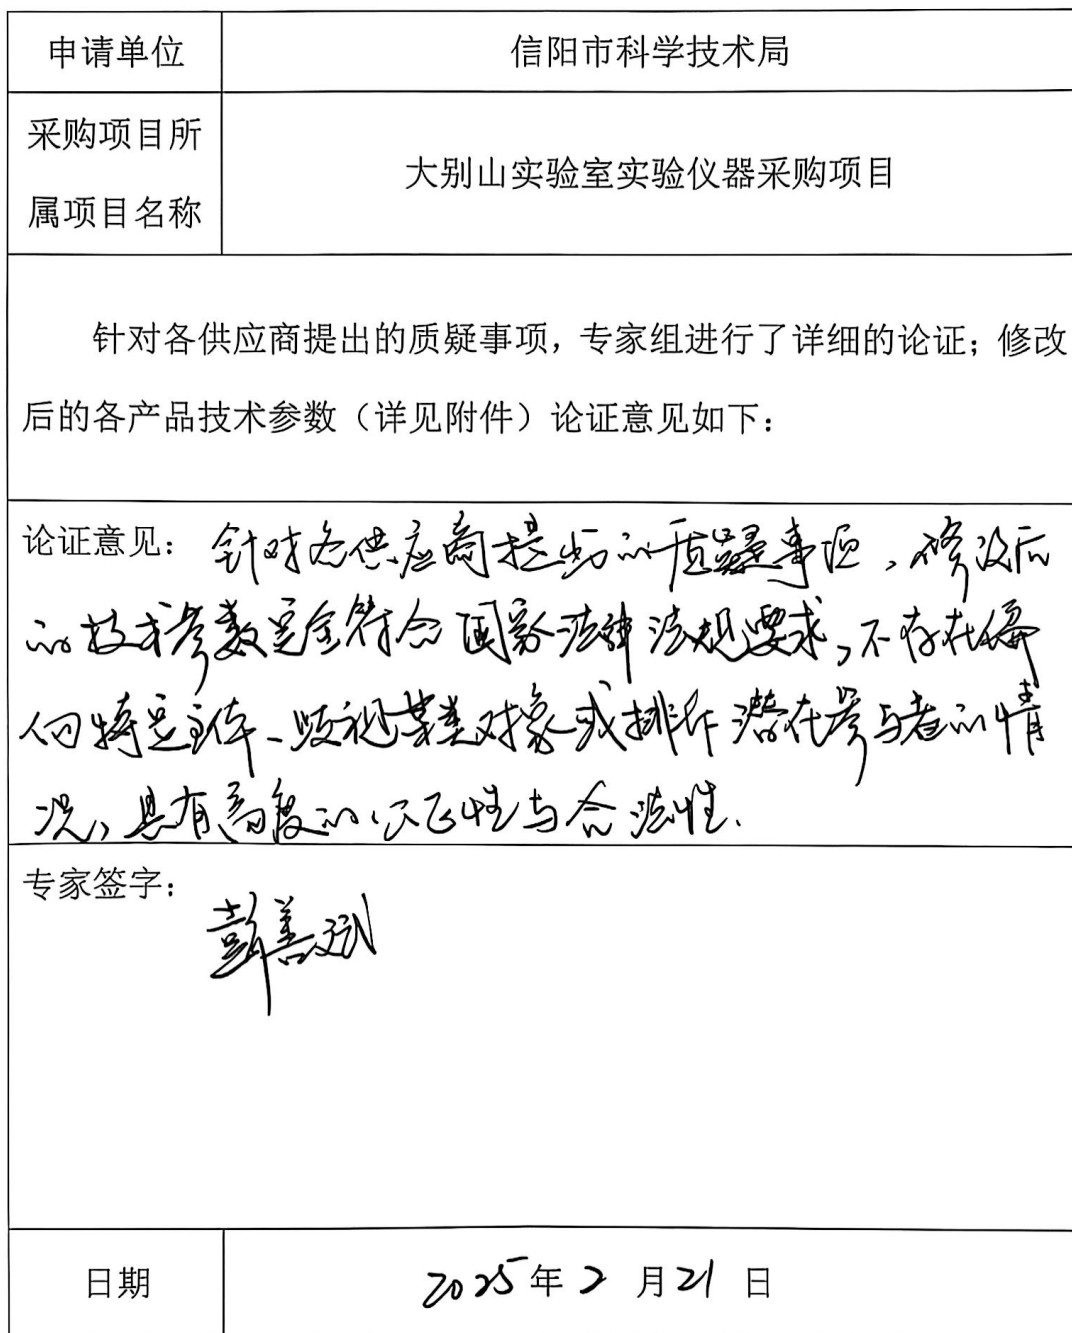 申请单位 信阳市科学技术局
采购项目所
属项目名称
大别山实验室实验仪器采购项目
针对各供应商提出的质疑事项，专家组进行了详细的论证；修改
后的各产品技术参数（详见附件）论证意见如下：
论证意见：针对各供应商提出的质疑事项，修改后
的技术参数完全符合国家法律法规要求，不存在偏
向特定主体、歧视某类对象或排斥潜在参与者的情
况，具有高度的公正性与合法性.
专家签字：
彭善
日期 2025年2月21日